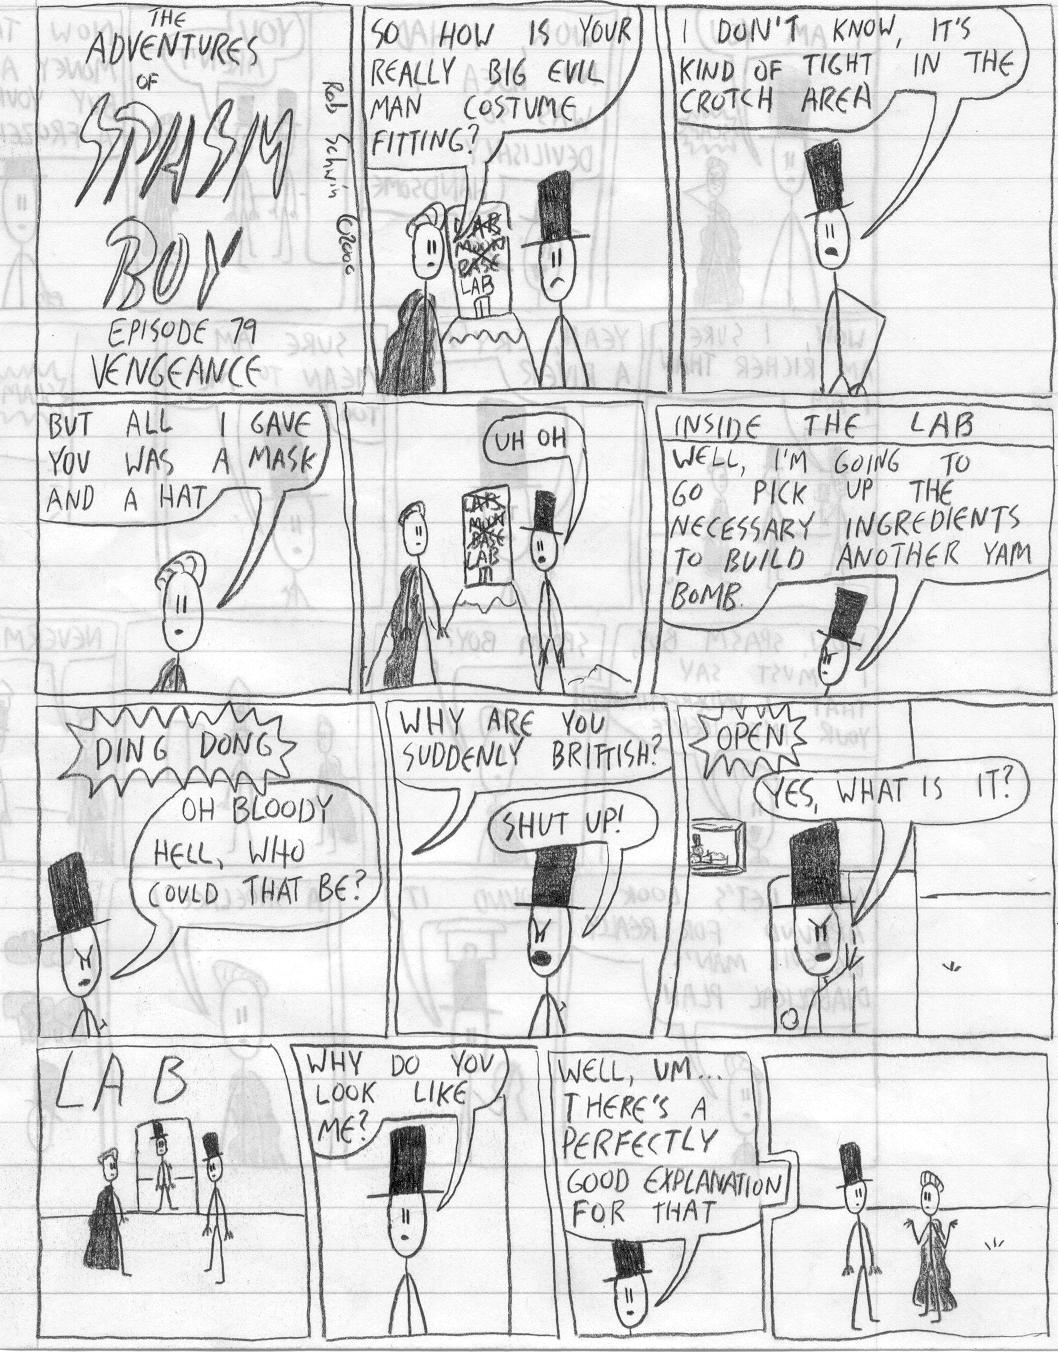 THE
ADVENTURES
OF
SPASM
BOY
EPISODE 79
VENGEANCE
Rob Schwin ©2006
SO HOW IS YOUR
REALLY BIG EVIL
MAN COSTUME
FITTING?
LAB
MOON
BASE
LAB
I DON'T KNOW, IT'S
KIND OF TIGHT IN THE
CROTCH AREA
BUT ALL I GAVE
YOU WAS A MASK
AND A HAT
UH OH
LAB
MOON
BASE
LAB
INSIDE THE LAB
WELL, I'M GOING TO
GO PICK UP THE
NECESSARY INGREDIENTS
TO BUILD ANOTHER YAM
BOMB.
DING DONG
OH BLOODY
HELL, WHO
COULD THAT BE?
WHY ARE YOU
SUDDENLY BRITTISH?
SHUT UP!
OPEN
YES, WHAT IS IT?
LAB
WHY DO YOU
LOOK LIKE
ME?
WELL, UM...
THERE'S A
PERFECTLY
GOOD EXPLANATION
FOR THAT